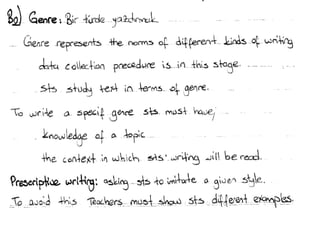 B2) Genre: Bir türde yazdırmak
Genre represents the norms of different kinds of writing
data collection precedure is in this stage
sts study text in terms of genre.
To write a specif genre sts. must have,
knowledge of a topic
the context in which sts' writing will be read.
Prescriptive writing: asking sts to imitate a given style.
To avoid this Teachers must show sts different examples.